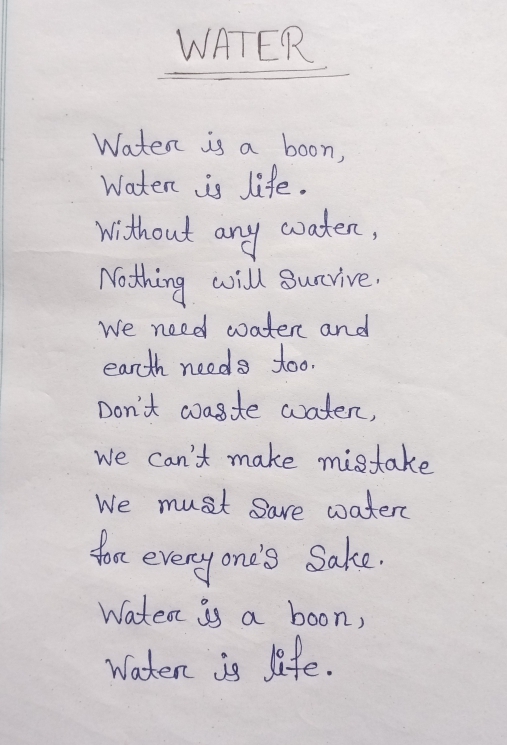 WATER
Water is a boon,
Water is life.
Without any water,
Nothing will Survive.
We need water and
earth needs too.
Don't waste water,
We can't make mistake
We must Save water
for everyone's Sake.
Water is a boon,
Water is life.